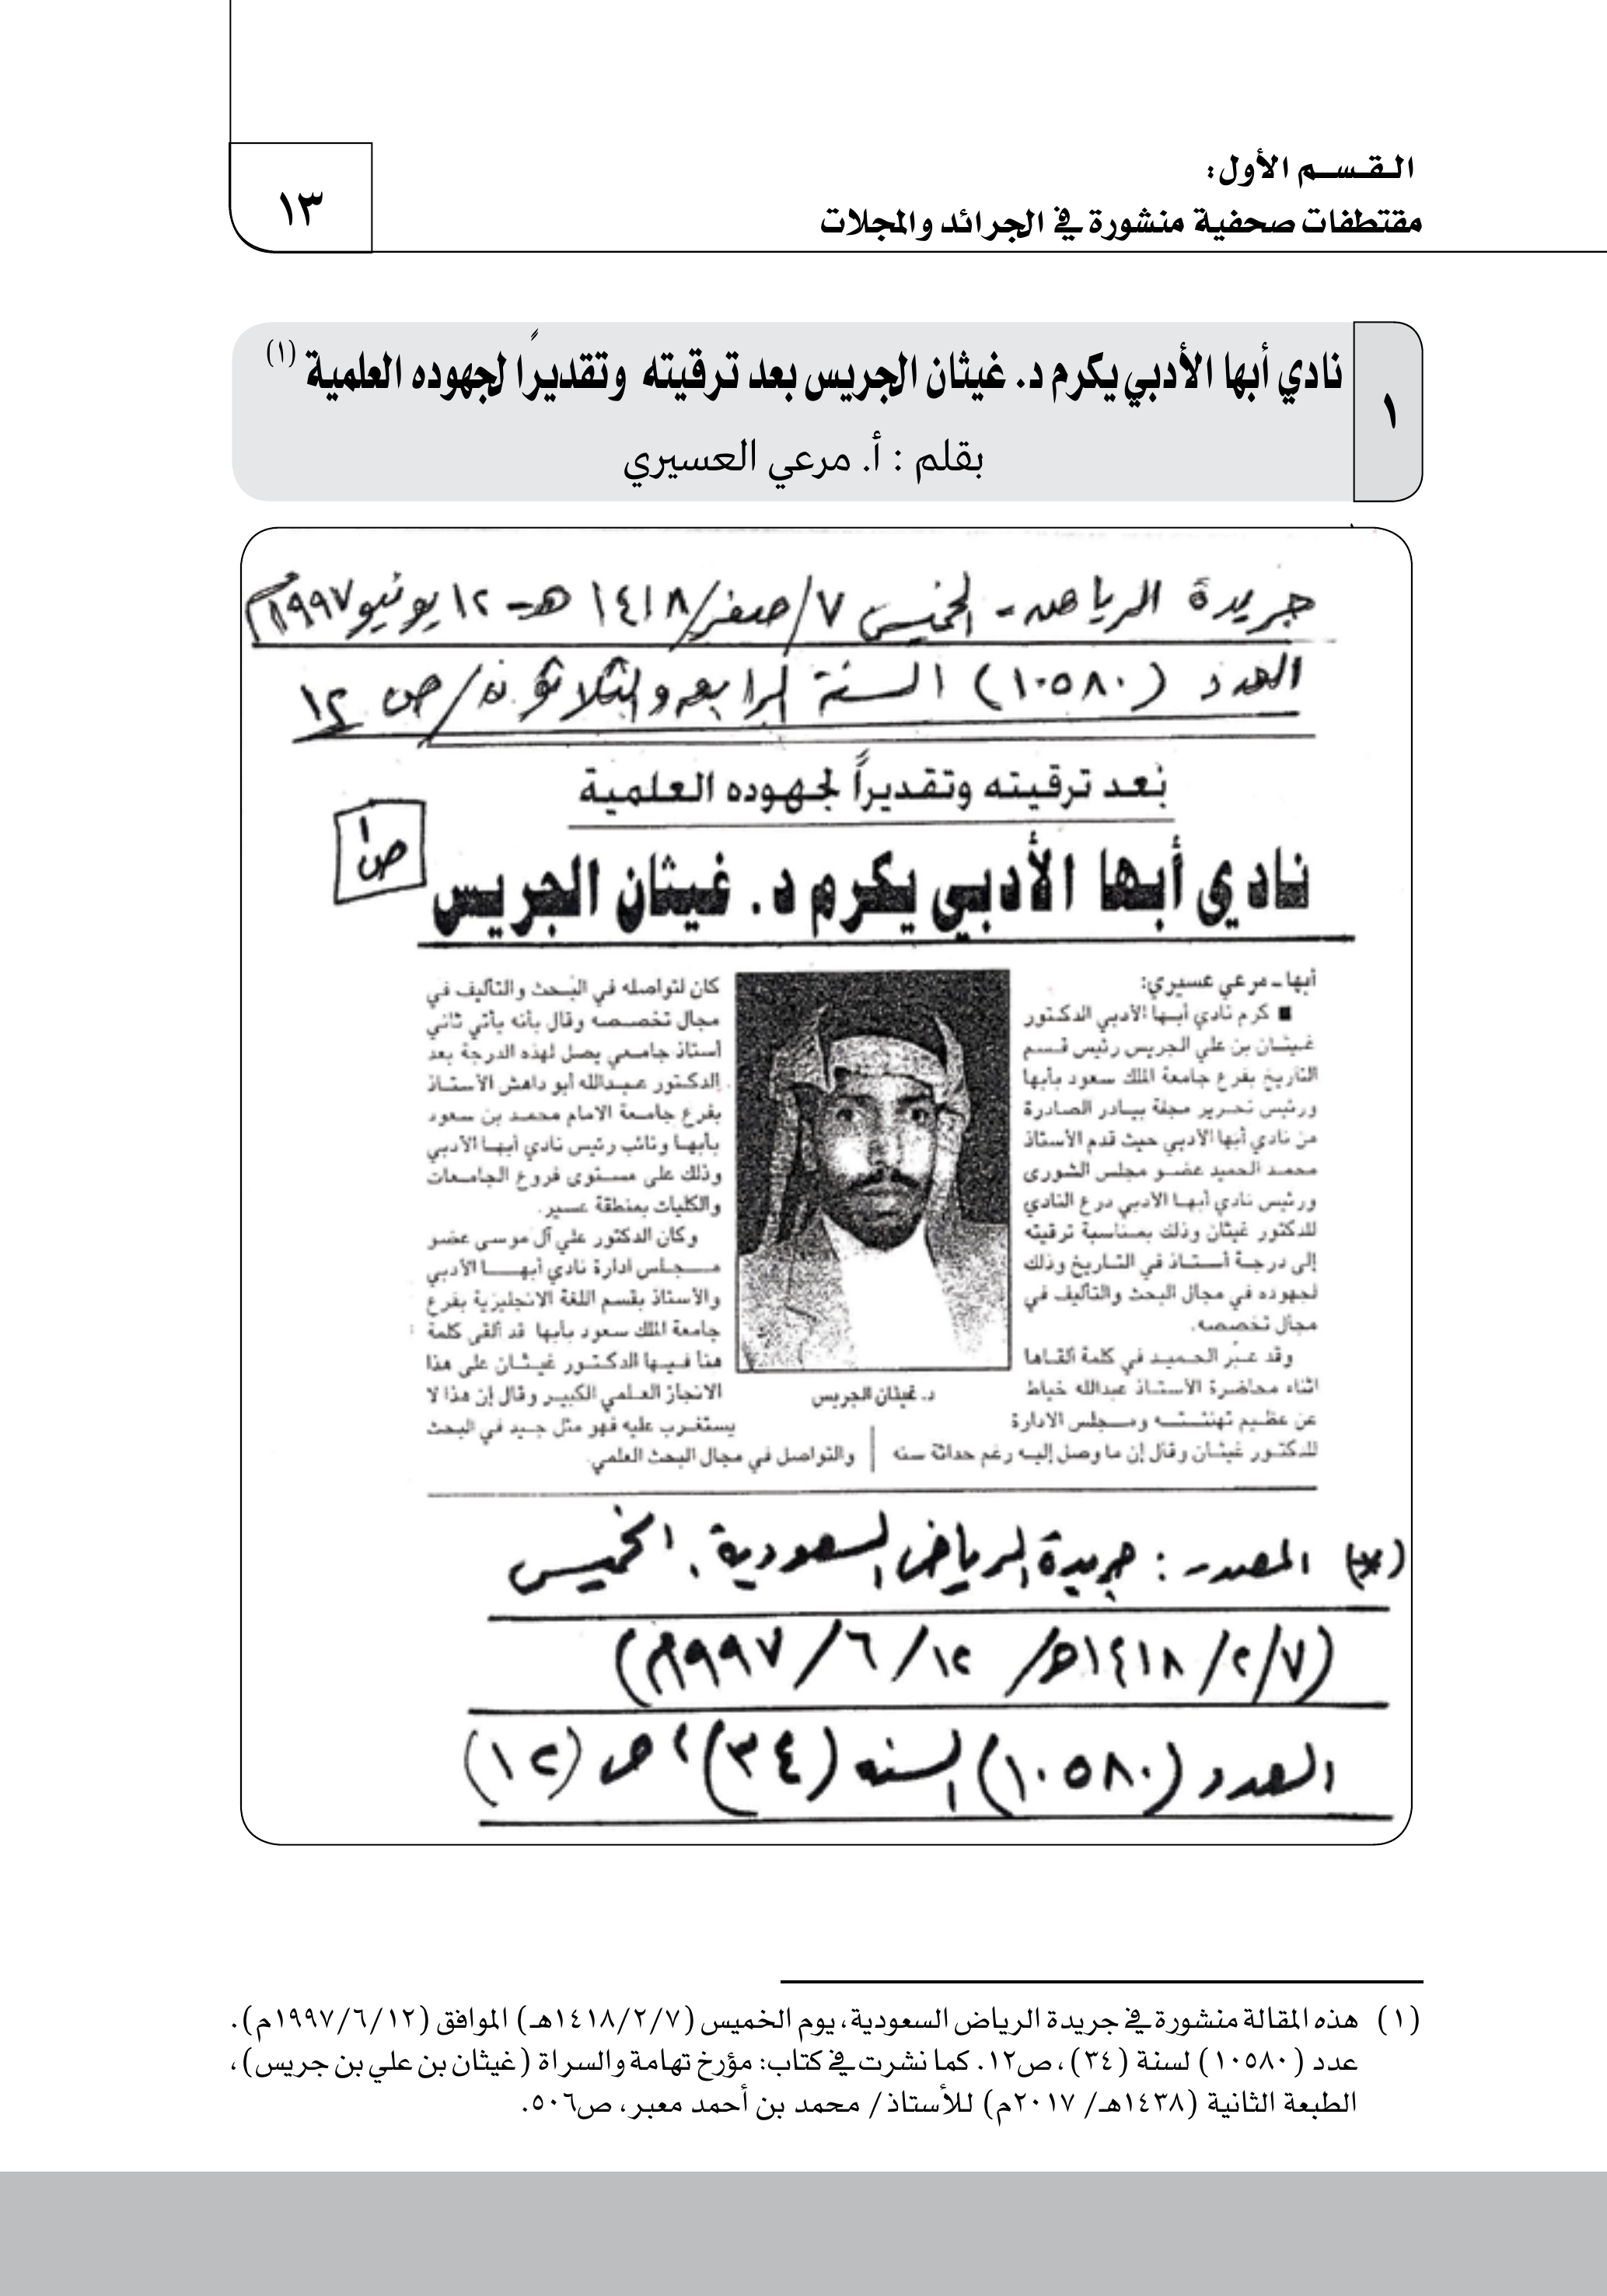 القسم الأول:
مقتطفات صحفية منشورة في الجرائد والمجلات
١٣
١
نادي أبها الأدبي يكرم د. غيثان الجريس بعد ترقيته وتقديرًا لجهوده العلمية (١)
بقلم : أ. مرعي العسيري
جريدة الرياض - الخميس ٧/صفر/١٤١٨هـ - ١٢ يونيو ١٩٩٧م
العدد (١٠٥٨٠) السنة الرابعة والثلاثون/ص ١٢
بعد ترقيته وتقديراً لجهوده العلمية
ص١
نادي أبها الأدبي يكرم د. غيثان الجريس
أبها ـ مرعي عسيري:
■ كرم نادي أبها الأدبي الدكتور
غيثان بن علي الجريس رئيس قسم
التاريخ بفرع جامعة الملك سعود بأبها
ورئيس تحرير مجلة بيادر الصادرة
من نادي أبها الأدبي حيث قدم الأستاذ
محمد الحميد عضو مجلس الشورى
ورئيس نادي أبها الأدبي درع النادي
للدكتور غيثان وذلك بمناسبة ترقيته
إلى درجة أستاذ في التاريخ وذلك
لجهوده في مجال البحث والتأليف في
مجال تخصصه.
وقد عبر الحميد في كلمة ألقاها
اثناء محاضرة الاستاذ عبدالله خياط
عن عظيم تهنئته ومجلس الادارة
للدكتور غيثان وقال إن ما وصل إليه رغم حداثة سنه
كان لتواصله في البحث والتأليف في
مجال تخصصه وقال بأنه يأتي ثاني
أستاذ جامعي يصل لهذه الدرجة بعد
الدكتور عبدالله أبو داهش الأستاذ
بفرع جامعة الامام محمد بن سعود
بأبها ونائب رئيس نادي أبها الأدبي
وذلك على مستوى فروع الجامعات
والكليات بمنطقة عسير.
وكان الدكتور علي آل موسى عضو
مجلس ادارة نادي أبها الأدبي
والأستاذ بقسم اللغة الانجليزية بفرع
جامعة الملك سعود بأبها قد ألقى كلمة
هنأ فيها الدكتور غيثان على هذا
الانجاز العلمي الكبير وقال إن هذا لا
يستغرب عليه فهو مثل جيد في البحث
والتواصل في مجال البحث العلمي.
د. غيثان الجريس
(*) المصدر : جريدة الرياض السعودية . الخميس
(٧/٢/١٤١٨هـ/ ١٢/٦/١٩٩٧م)
العدد (١٠٥٨٠) السنه (٣٤)، ص (١٢)
(١) هذه المقالة منشورة في جريدة الرياض السعودية، يوم الخميس (١٤١٨/٢/٧هـ) الموافق (١٩٩٧/٦/١٢م).
عدد (١٠٥٨٠) لسنة (٣٤)، ص١٢. كما نشرت في كتاب: مؤرخ تهامة والسراة (غيثان بن علي بن جريس)،
الطبعة الثانية (١٤٣٨هـ/ ٢٠١٧م) للأستاذ/ محمد بن أحمد معبر، ص٥٠٦.